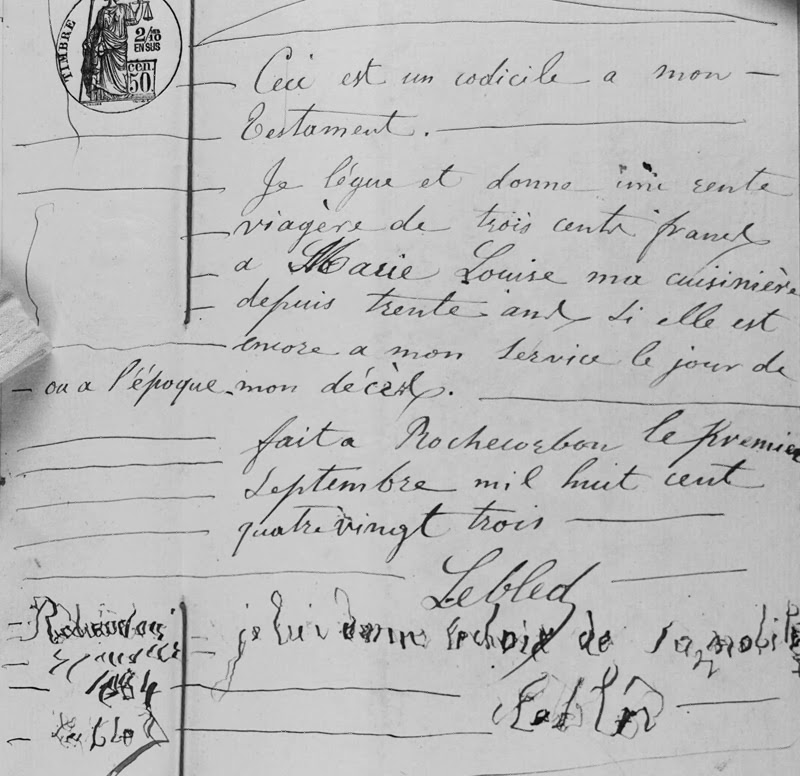 TIMBRE
2/10
EN SUS
50 cen.
Ceci est un codicile a mon
testament.
Je légue et donne une rente
viagère de trois cents francs
a Marie Louise ma cuisinière
depuis trente ans si elle est
encore a mon service le jour de
ou a l'époque mon décès.
fait a Rochecorbon le premier
septembre mil huit cent
quatre vingt trois
Lebled
je lui donne le choix de
Lebled